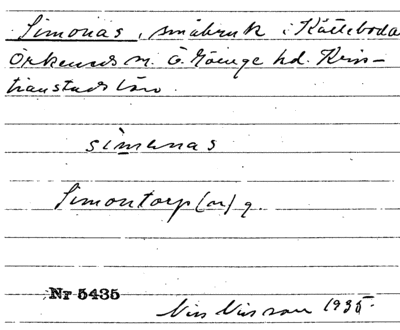 Simonas, småbruk i Kätteboda
Örkeneds sn. Ö. Göinge hd. Kris-
tianstads län.
simunas
Simontorp (n) g.
Nr 5435
Nils Nilsson 1935.